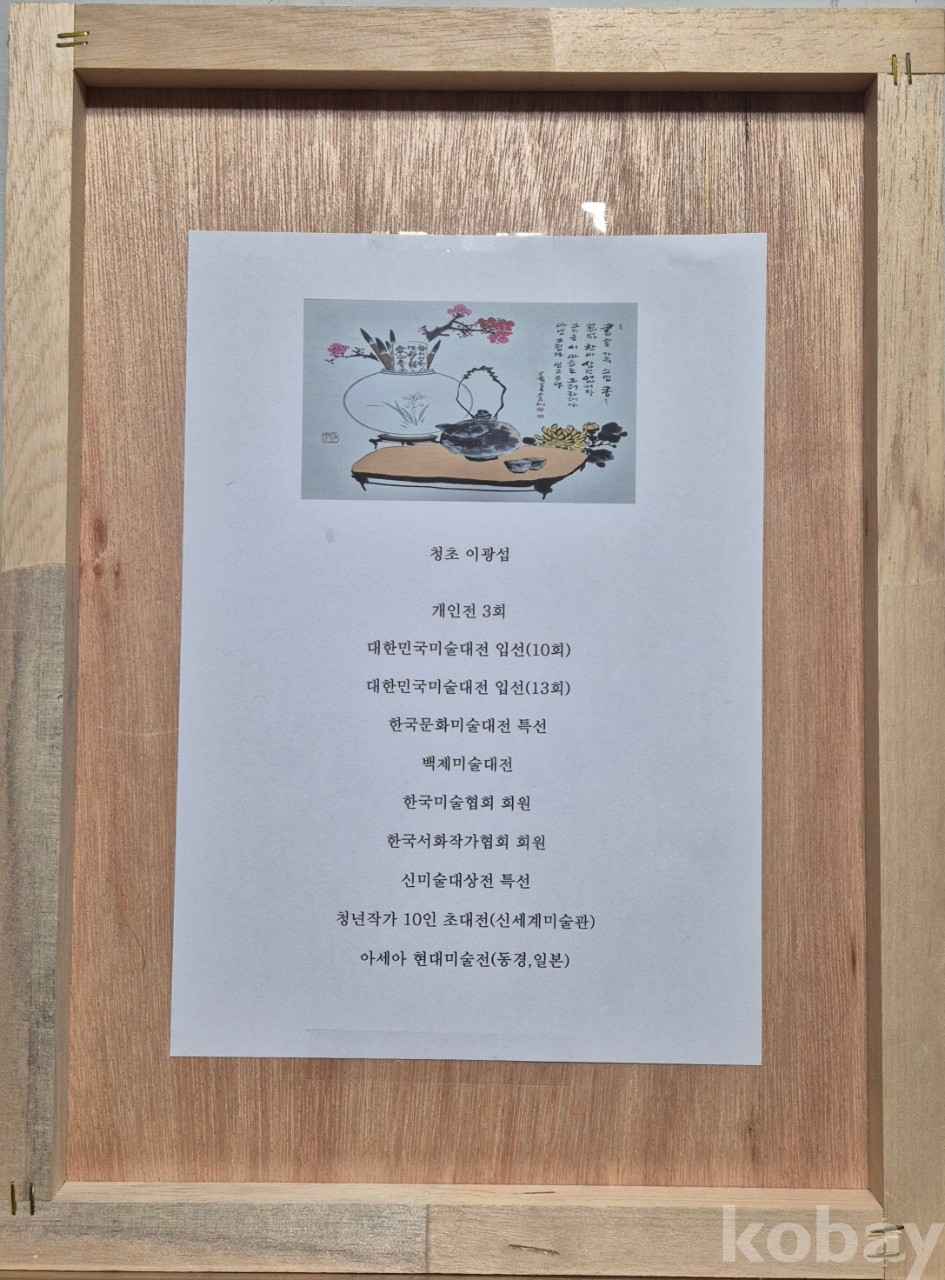 청초 이광섭
개인전 3회
대한민국미술대전 입선(10회)
대한민국미술대전 입선(13회)
한국문화미술대전 특선
백제미술대전
한국미술협회 회원
한국서화작가협회 회원
신미술대상전 특선
청년작가 10인 초대전(신세계미술관)
아세아 현대미술전(동경,일본)
kobay